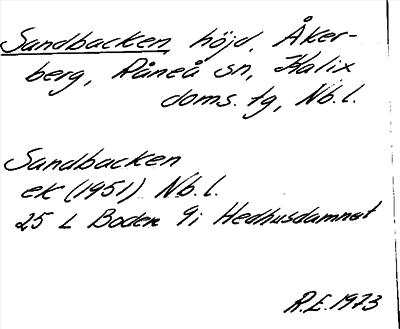 Sandbacken höjd, Åker-
berg, Råneå sn, Kalix
doms. tg, Nb.l.
Sandbacken
ek (1951) Nb.l.
25 L Boden 9i Hedhusdamnet
R.E.1973